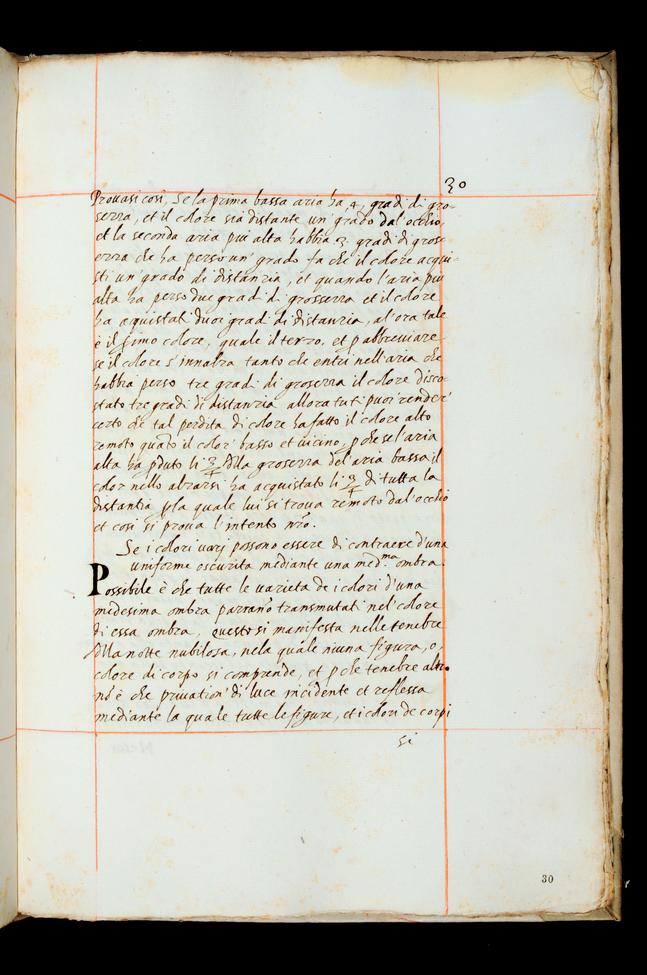 30
Prouasi così, Se la prima bassa aria ha 4, gradi di gro-
serra, et il colore sia distante un' grado dal' occhio,
et la seconda aria più alta habbia 3. gradi di gros-
erra che ha perso un' grado fa che il colore acqui-
sti un' grado di distanzia, et quando l'aria più
alta ha perso due gradi di grosserra et il colore
ha aquistati duoi gradi di distanzia, al' ora tale
è il primo colore, quale il terzo, et p abbreuiare
se il colore s' innalza tanto che entri nell'aria che
habbia perso tre gradi di groserra il colore disco-
stato tre gradi di distanzia allora tu ti puoi render'
certo che tal perdita di colore ha fatto il colore alto
remoto quāto il color' basso et uicino, p che se l'aria
alta ha pduto li 3/4 della groserra del' aria bassa il
color nello alzarsi ha acquistato li 3/4 di tutta la
distantia p la quale lui si troua remoto dal' occhio
et così si proua l' intento nrō.
Se i colori uarj possono essere di contraere d'una
uniforme oscurità mediante una med.ma ombra.
Possibile è che tutte le uarietà de i colori d'una
medesima ombra parranō transmutati nel' colore
di essa ombra, questo si manifesta nelle tenebre
della notte nubilosa, nela quale niuna figura, o,
colore di corpo si comprende, et p che tenebre altro
nō è che priuation' di luce incidente et reflessa
mediante la quale tutte le figure, et i colori de corpi
si
30